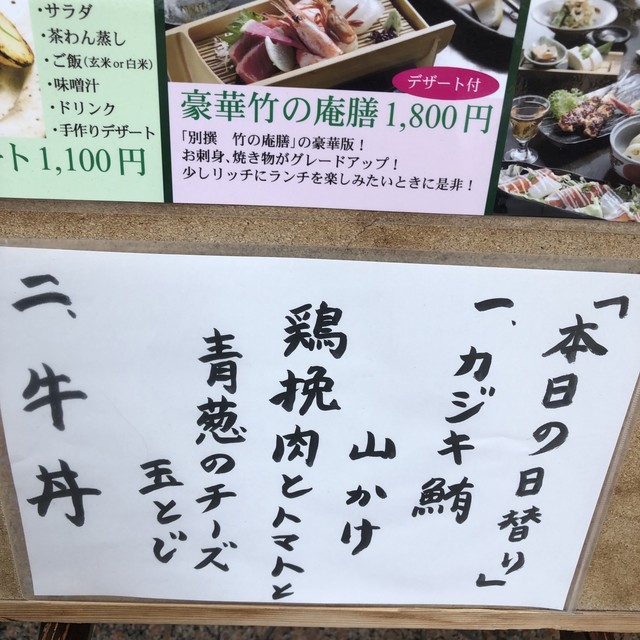 ・サラダ
・茶わん蒸し
・ご飯(玄米or白米)
・味噌汁
・ドリンク
・手作りデザート
ート1,100円
デザート付
豪華竹の庵膳1,800円
「別撰　竹の庵膳」の豪華版！
お刺身、焼き物がグレードアップ！
少しリッチにランチを楽しみたいときに是非！
「本日の日替り」
一、カジキ鮪
山かけ
鶏挽肉とトマトと
青葱のチーズ
玉とじ
二、牛丼